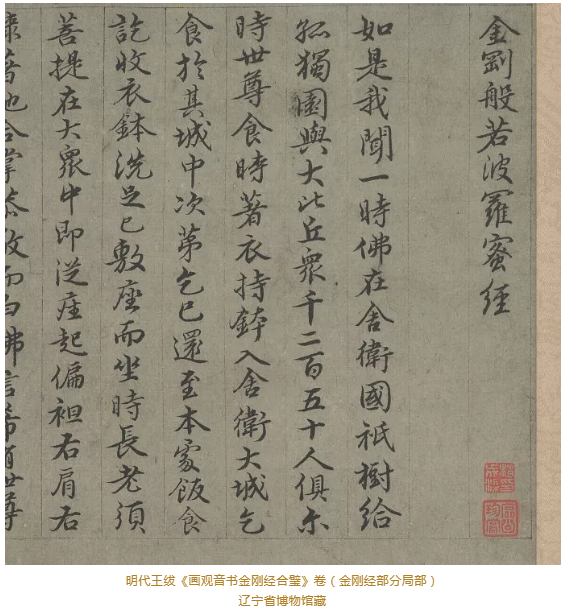 金剛般若波羅蜜經
如是我聞一時佛在舍衛國祇樹給
孤獨園與大比丘衆千二百五十人俱尔
時世尊食時著衣持鉢入舍衛大城乞
食於其城中次第乞已還至本處飯食
訖收衣鉢洗足已敷座而坐時長老須
菩提在大衆中即從座起偏袒右肩右
膝著地合掌恭敬而白佛言希有世尊
明代王绂《画观音书金刚经合璧》卷（金刚经部分局部）
辽宁省博物馆藏